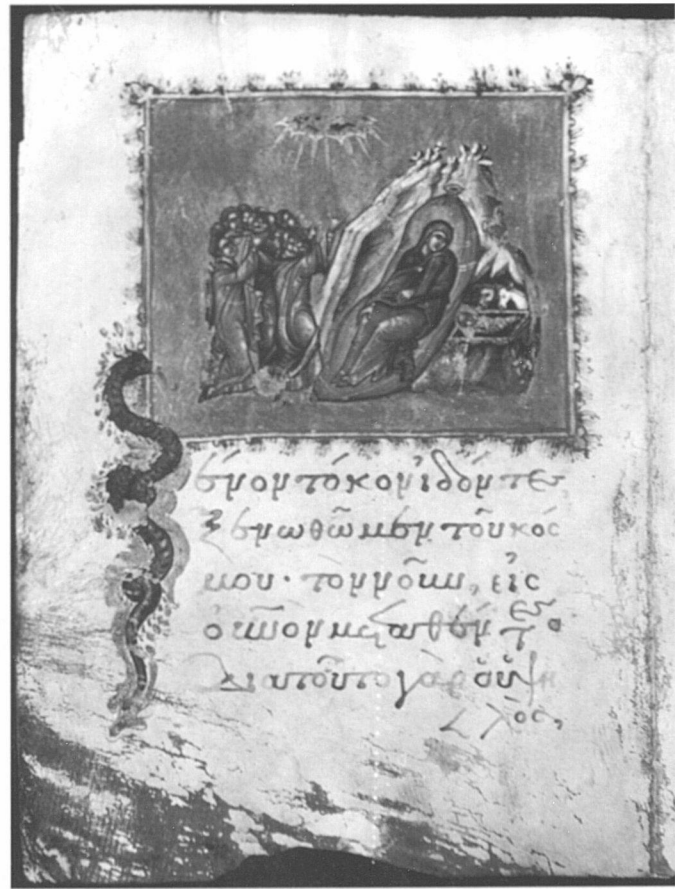 Ξένον τόκον ἰδόντες
ξενωθῶμεν τοῦ κόσ
μου· τὸν νοῦν, εἰς
οὐ̅νον μεταθέντες
διατοῦτο γὰρ ὁ ὑψη
λὸς,